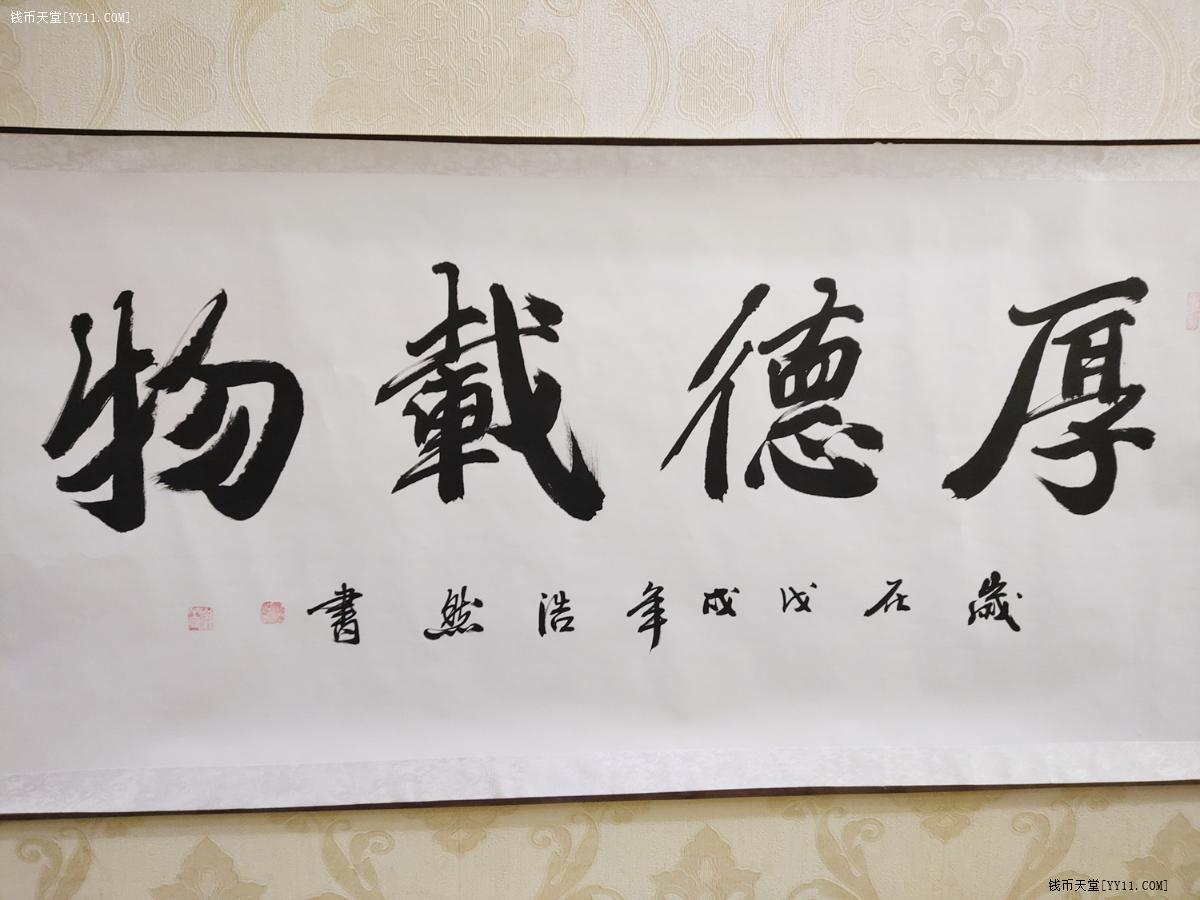 钱币天堂[YY11.COM]
厚德載物
歲在戊戌年浩然書
钱币天堂[YY11.COM]